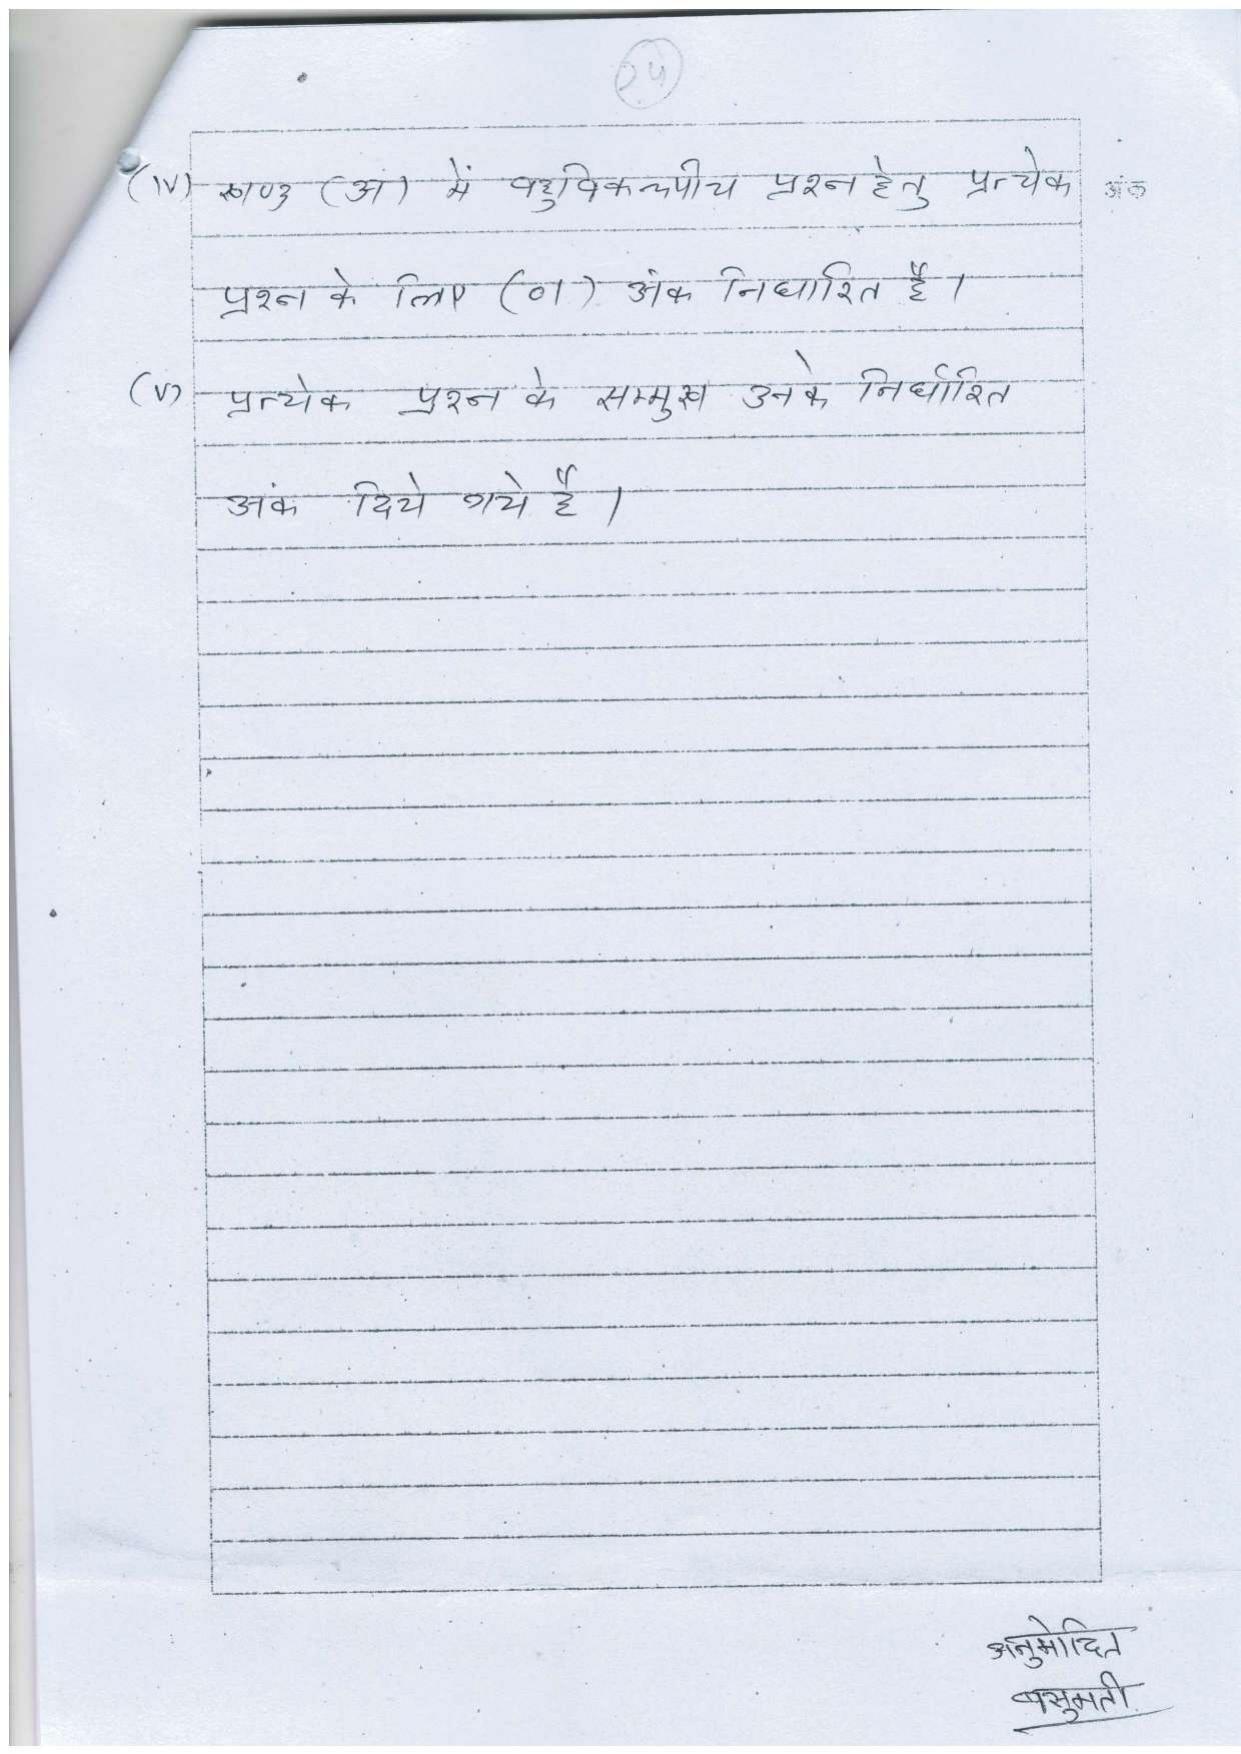 २५
(iv) खण्ड (अ) में बहुविकल्पीय प्रश्न हेतु प्रत्येक अंक
प्रश्न के लिए (०१) अंक निर्धारित है।
(v) प्रत्येक प्रश्न के सम्मुख उनके निर्धारित
अंक दिये गये है।
अनुमोदित
वसुमती